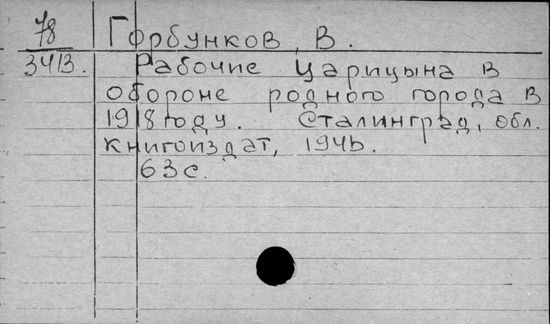 78 Горбунков, В.
3413. Рабочие Царицына в
обороне родного города в
1918 году. Сталинград, обл.
книгоиздат, 194б.
63 с.